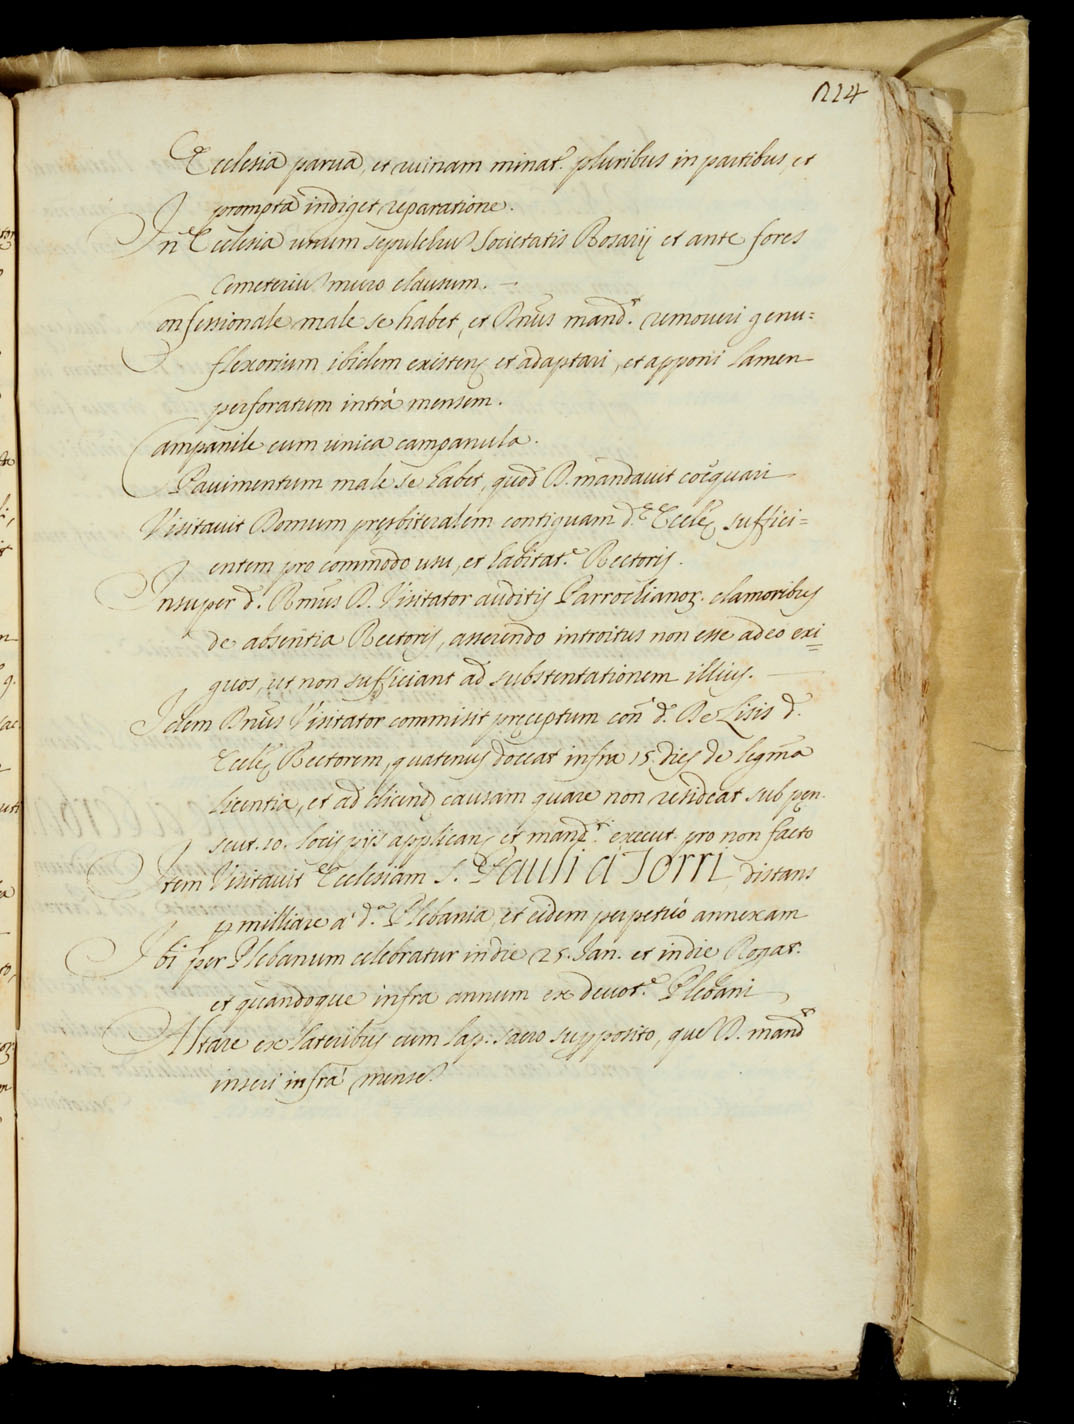 224
Ecclesia parua, et ruinam minat.r pluribus in partibus, et
prompta indiget reparatione.
In Ecclesia unum sepulchrũ Societatis Rosarij et ante fores
Cemeteriũ muro clausum.
Confessionale male se habet, et Dñus mand.t remoueri genu=
flexorium ibidem existens et adaptari, et apponi lamen
perforatum intrà mensem.
Campanile cum unica campanula.
Pauimentum male se habet, quod D. mandauit coequari
Visitauit Domum presbiteralem contiguam d.e Eccles. suffici=
entem pro commodo usu, et habitat.e Rectoris.
Insuper d. Rmus D. Visitator auditis Parrochianor. clamoribus
de absentia Rectoris, asserendo introitus non esse adeo exi=
guos, ut non sufficiant ad substentationem illius.
Idem Dnus Visitator commisit preceptum con.a d. De Lisis d.
Eccle. Rectorem, quatenus doceat infra 15. dies de legma
licentia, et ad dicend. causam quare non resideat sub pen.
scut. 10. locis pijs applican. et mand.ri execut. pro non facto
Item Visitauit Ecclesiam S. Pauli à Torri distans
p milliare à d.a Plebania, et eidem perpetuò annexam
Ibi per Plebanum celebratur in die 25. Jan. et in die Rogat.
et quandoque infra annum ex deuot.e Plebani
Altare ex lateribus cum lap. sacro supposito, que D. mand.t
inseri infrà mensẽ.